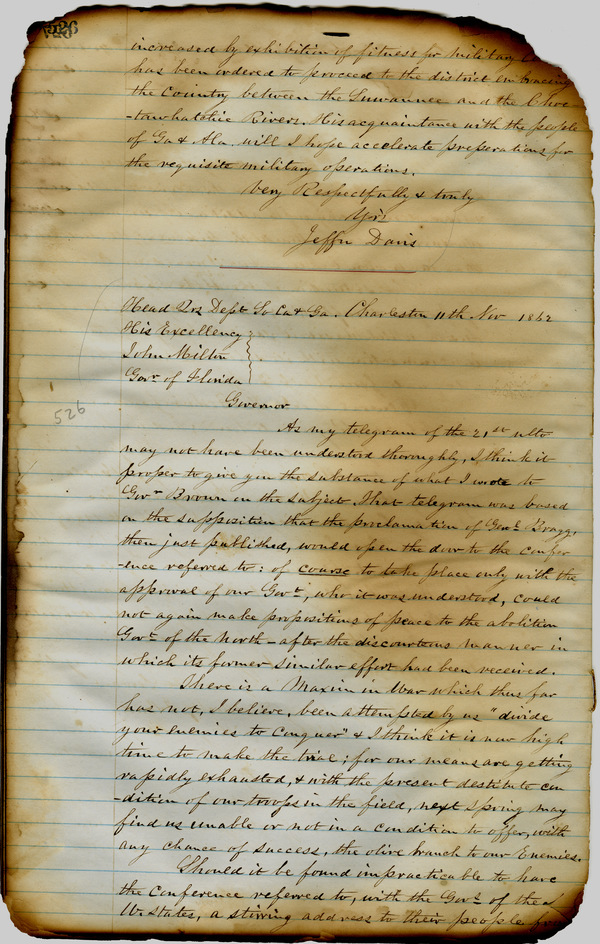 526
increased by exhibition of fitness for military
has been ordered to proceed to the district embracing
the country between the Suwannee and the Choc
-tawhatchie Rivers. His acquaintance with the people
of Ga & Ala. will I hope accelerate preperations for
the requisite military operations.
Very Respectfully & truly
Yrs
Jeffn Davis
Head Qrs Dept So Ca & Ga. Charleston 11th Nov 1862
His Excellency
John Milton
Govr. of Florida
526
Governor
As my telegram of the 21st ulto
may not have been understood thoroughly, I think it
proper to give you the substance of what I wrote to
Govr Brown on the subject. That telegram was based
on the supposition that the proclamation of Genl Bragg,
then just published, would open the door to the confer
-ence referred to: of course to take place only with the
approval of our Govt, who it was understood, could
not again make propositions of peace to the abolition
Govt of the North - after the discourteous manner in
which its former similar effort had been received.
There is a Maxim in War which thus far
has not, I believe, been attempted by us "divide
your enemies to conquer" & I think it is now high
time to make the trial; for our means are getting
rapidly exhausted, & with the present destitute con
-dition of our troops in the field, next Spring may
find us unable or not in a condition to offer, with
any chance of success, the olive branch to our Enemies.
Should it be found impracticable to have
the Conference referred to, with the Govs. of the N
Wn States, a stirring address to their people